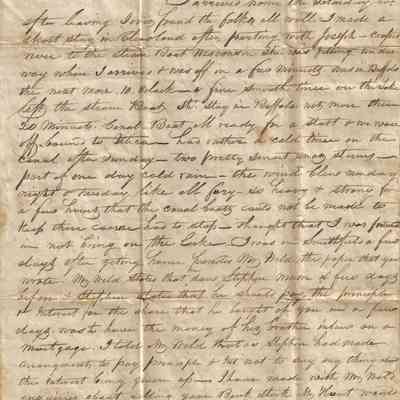 I arrived home the
after leaving Iowa found the folks all well I made a
short stay in Cleaveland after parting with Joseph
over to the Steam Boat Wisconsin She was getting under
way when I arrived & was off in a few Minuets was in Buffalo
the next morn 10. Oclock a fine smooth time on the Lake
left the Steam Boat, the Stay in Buffalo not more then
20 Minuets. Canal Boat all ready for a start & we were
off bound to Utica has rather a cold time on the
Canal after Sunday — two pretty smart snag Storms
part of one day cold rain — the wind blew Sunday
night & Tuesday like all fury so heavy & strong for
a few hours that the canal boats could not be made to
keep their corse has to stop — thought that I was fortunate
in not being on the Lake. I was in Smithfield a few
days after geting home presented Mr. Wild the paper that you
wrote. Mr Wild States that saw Stephen a few days
before & Stephen States that he should pay the principle
& Interest for the share that he bought of you in a few
days. was to have the money of his brother on a
Mortgage. I told Mr Wild that as Stephen had made
arangments to pay principle & but not to say any thing about
the Interest being given up — I have made with Mr.
enquiries about selling your Bank Stock Mr. Hunt